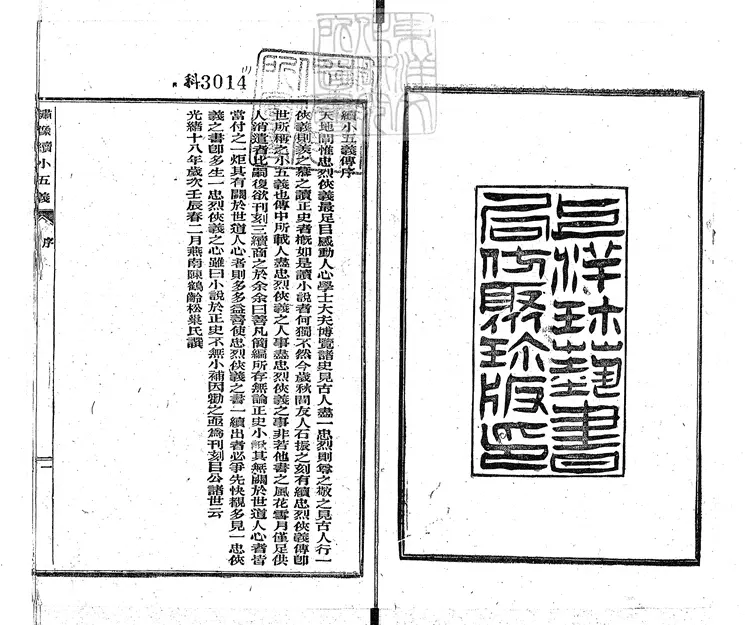 上洋珍藝書
局仿聚珍版印
科3014
續小五義傳序
天地間惟忠烈俠義最足㠯感動人心學士大夫博覽諸史見古人盡一忠烈則尊之敬之見古人行一
俠義則羨之慕之讀正史者槪如是讀小說者何獨不然今歲秋間友人石振之刻有續忠烈俠義傳卽
世所稱之小五義也傳中所載人盡忠烈俠義之人事盡忠烈俠義之事非若他書之風花雪月僅足供
人消遣者比嗣復欲刊刻三續商之於余余曰善凡簡編所存無論正史小說其無關於世道人心者皆
當付之一炬其有關於世道人心者則多多益善使忠烈俠義之書一續出者必爭先快覩多見一忠俠
義之書卽多生一忠烈俠義之心雖曰小說於正史不無小補因勸之亟爲刊刻㠯公諸世云
光緒十八年歲次壬辰春二月燕南陳鶴齡松巢氏譔
繡像續小五義
序
一